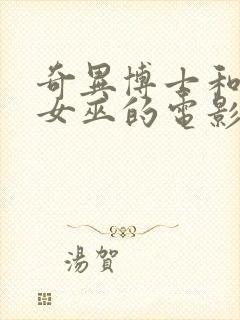 奇異博士和
女巫的電影
湯賀